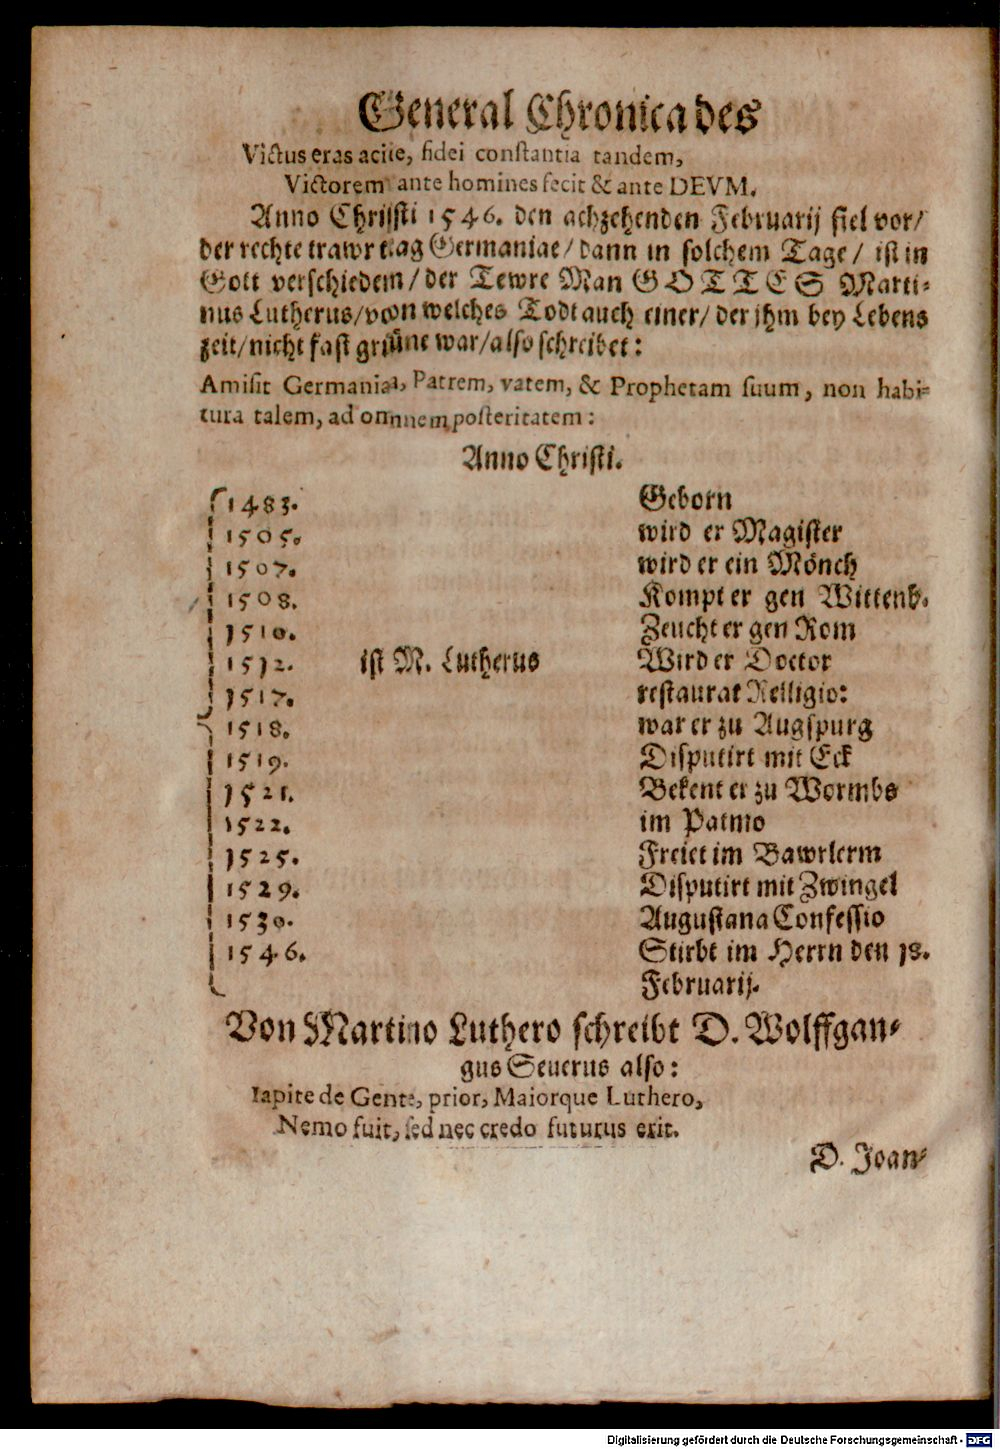 General Chronica des
Victus eras aciie, fidei constantia tandem,
Victorem ante homines fecit & ante DEVM.
Anno Chrissti 1546. den achzehenden Februarij fiel vor/
der rechte trawrtag Germaniae/ dann in solchem Tage/ ist in
Gott verschiedem/ der Tewre Man GOTTES Marti-
nus Lutherus/ von welches Todt auch einer/ der jhm bey Lebens
zeit/ nicht fast grüne war/ also schreibet:
Amisit Germania, Patrem, vatem, & Prophetam suum, non habi-
tura talem, ad omnem posteritatem:
Anno Christi.
1483. Geborn
1505. wird er Magister
1507. wird er ein Mönch
1508. Kompt er gen Wittenb.
1510. Zeucht er gen Rom
1512. ist M. Lutherus Wird er Doctor
1517. restaurat Relligio:
1518. war er zu Augspurg
1519. Disputirt mit Eck
1521. Bekent er zu Wormbs
1522. im Patmo
1525. Freiet im Bawrlerm
1529. Disputirt mit Zwingel
1530. Augustana Confessio
1546. Stirbt im Herrn den 18.
Februarij.
Von Martino Luthero schreibt D. Wolffgan-
gus Seuerus also:
Iapite de Gente, prior, Maiorque Luthero,
Nemo fuit, sed nec credo futurus erit.
D. Joan-
Digitalisierung gefördert durch die Deutsche Forschungsgemeinschaft - DFG